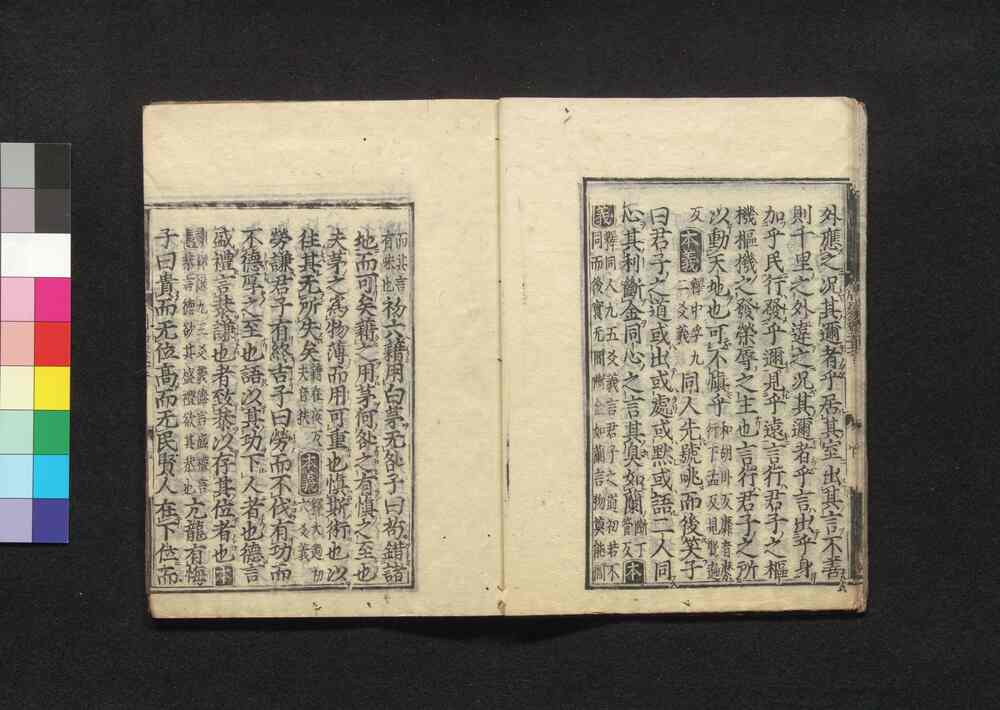 外應之况其邇者乎居其室出其言不善
則千里之外違之况其邇者乎言出乎身
加乎民行發乎邇見乎遠言行君子之樞
機樞機之發榮辱之主也言行君子之所
以動天地也可不愼乎和胡卦反靡音縻行下孟反見賢遍
反本義釋中孚九二爻義同人先號咷而後笑子
曰君子之道或出或處或黙或語二人同
心其利斷金同心之言其臭如蘭斷丁管反本
義釋同人九五爻義言君子之道初若不同而後實无間斷金如蘭言物莫能間
而其言有味也初六藉用白茅无咎子曰苟錯諸
地而可矣藉之用茅何咎之有愼之至也
夫茅之爲物薄而用可重也愼斯術也以
往其无所失矣藉在夜反夫音扶本義釋大過初六爻義
勞謙君子有終吉子曰勞而不伐有功而
不德厚之至也語以其功下人者也德言
盛禮言恭謙也者致恭以存其位者也本
子曰貴而无位高而无民賢人在下位而